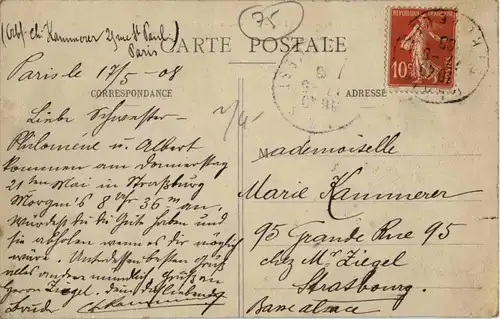 (Abs. Ch. Kammerer 21 rue St Paul
Paris
75
CARTE POSTALE
RÉPUBLIQUE FRANÇAISE
10c
Paris le 17/5 - 08
CORRESPONDANCE
ADRESSE
Liebe Schwester
Philomène u. Albert
kommen am Donnerstag
21ten Mai in Straßburg
Morgens 8 Uhr 36 m an.
Würdest du die Güte haben und
sie abholen wenn es dir möglich
wäre. Unterdessen besten Gruß
alles andere mündlich. Grüße an
Herrn Ziegel. Dein dich liebender
Bruder Ch Kammerer
Mademoiselle
Marie Kammerer
95 Grande Rue 95
chez Mr Ziegel
Strasbourg.
Basse alsace